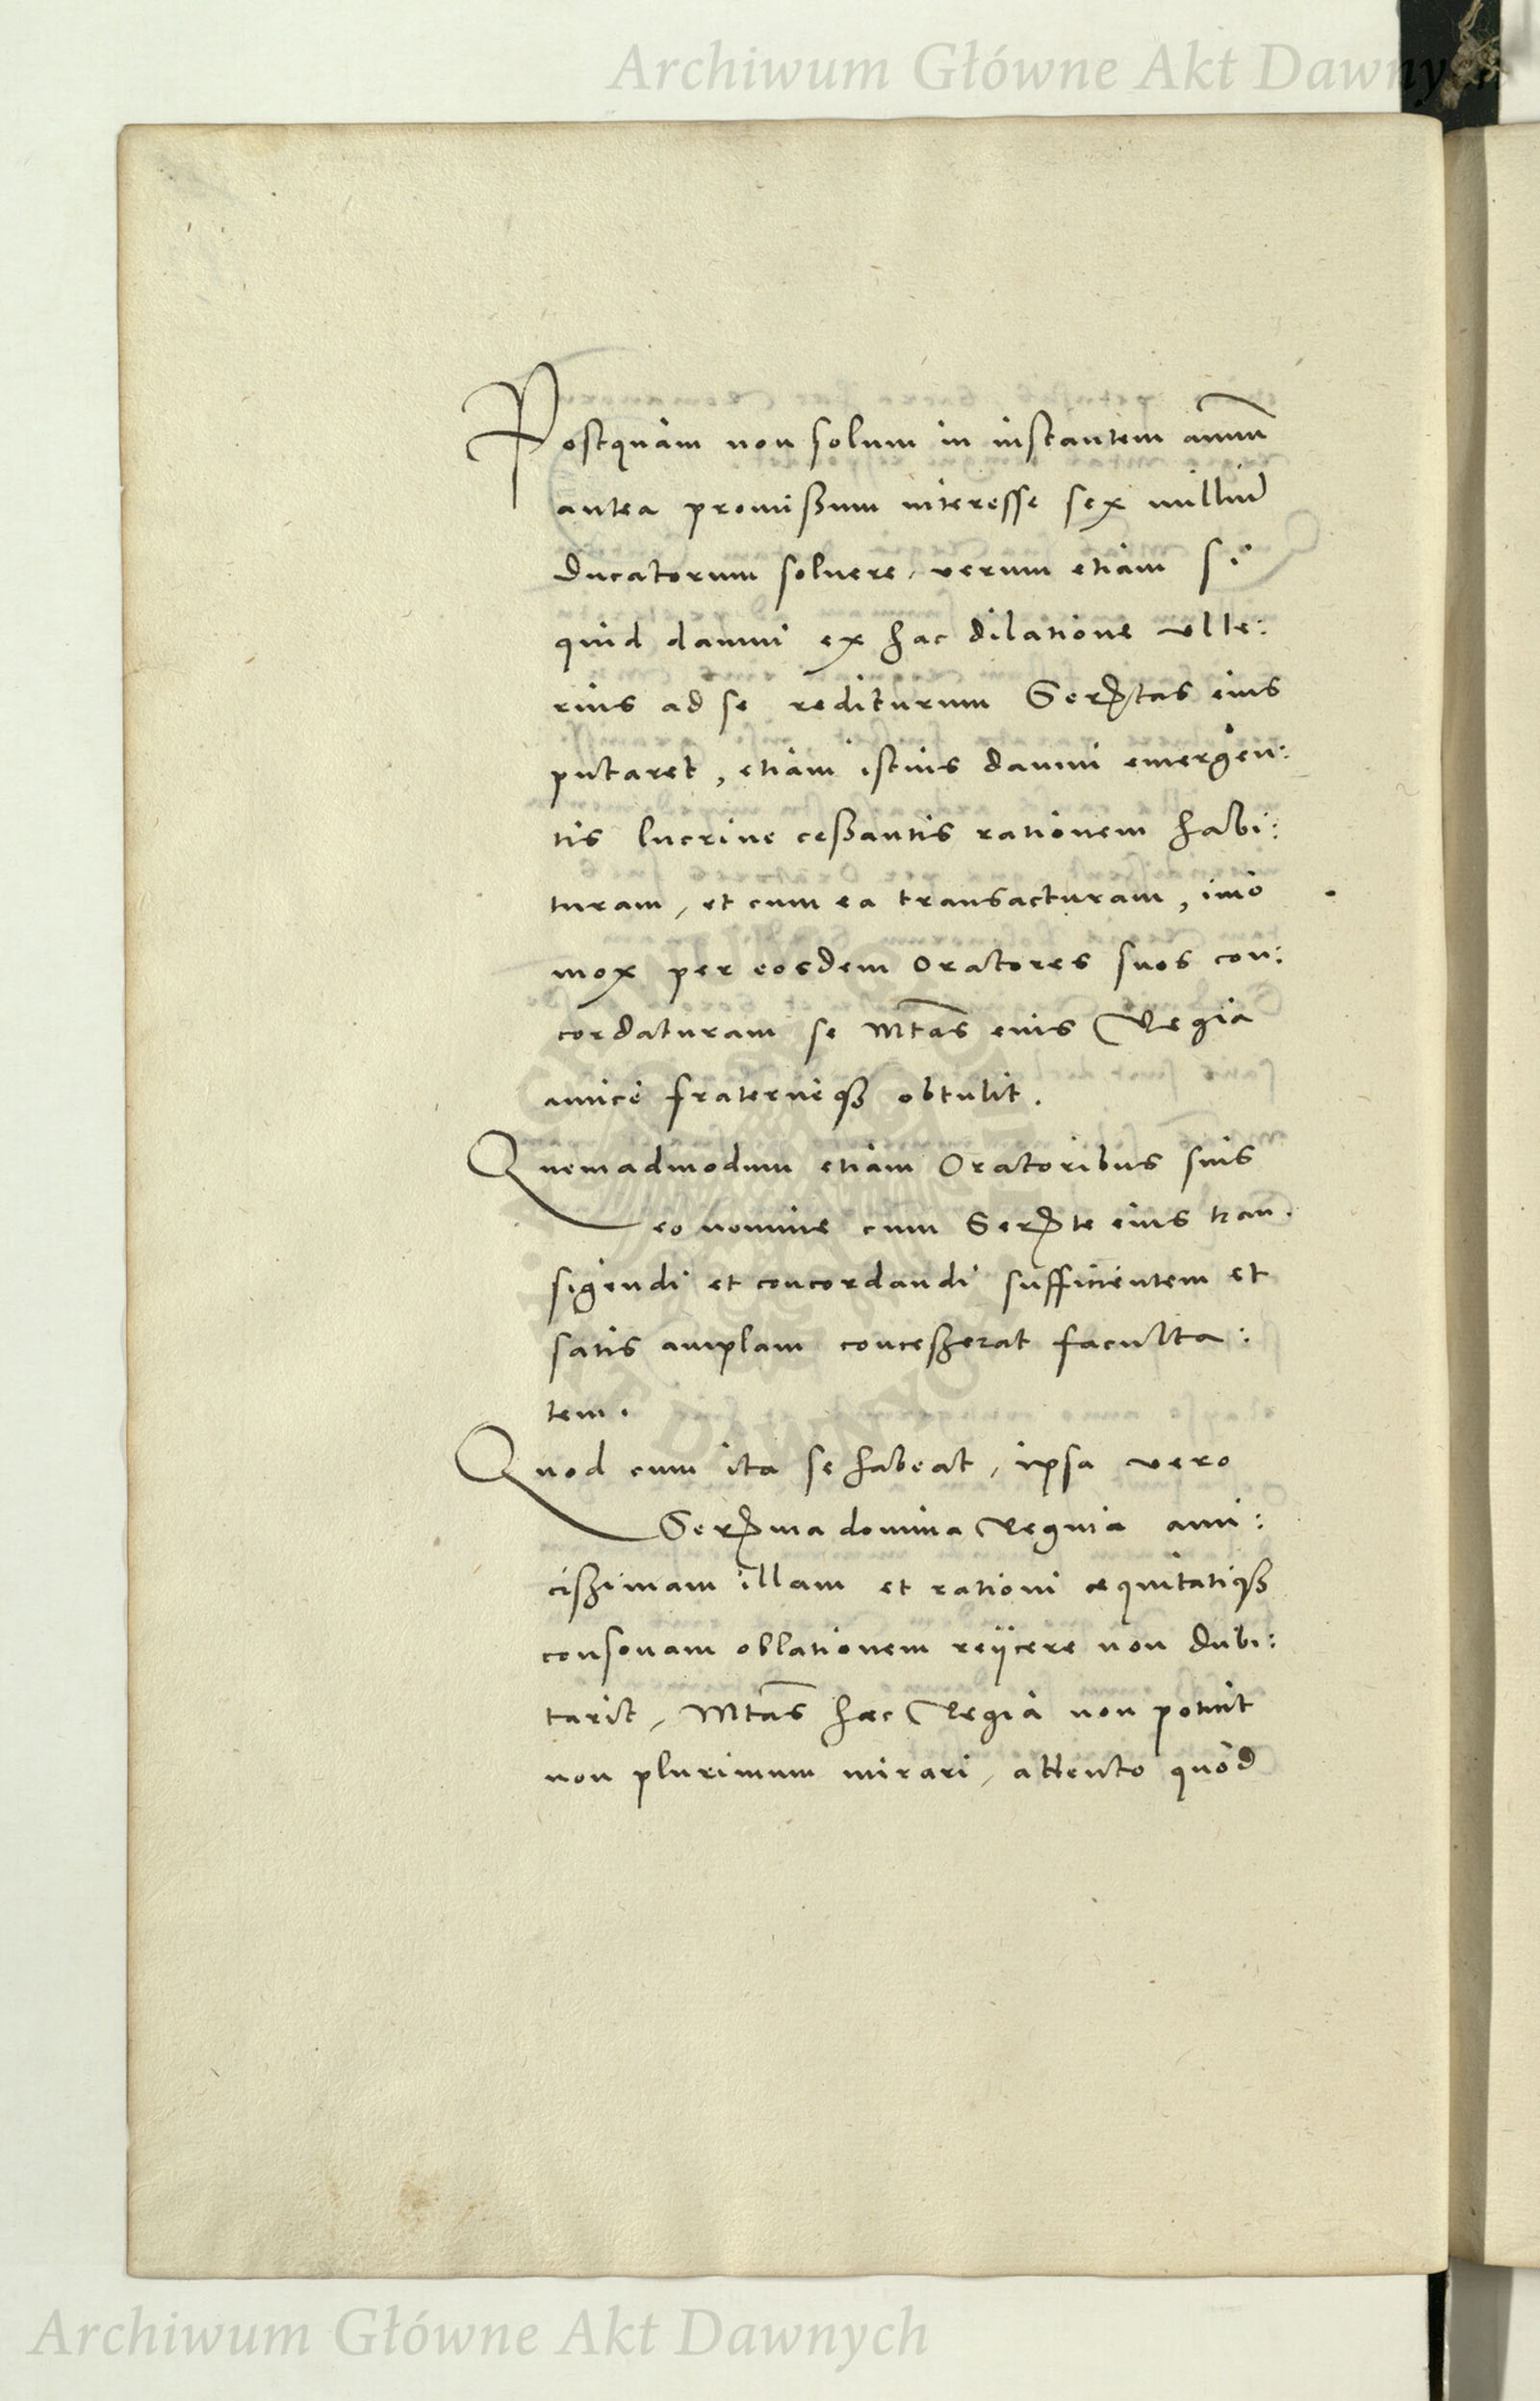 Archiwum Główne Akt Dawnych
Postquam non solum in instantem annum
antea promissum interesse sex milliu͂
Ducatorum soluere, verum etiam si
quid damni ex hac dilatione vlte:
rius ad se rediturum Serꝫtas eius
putaret, etiam istius damni emergen:
tis lucrive cessantis rationem habi:
turam, et cum ea transacturam, imo
mox per eosdem Oratores suos con:
cordaturam se Mtas eius Regia
amice fraterneqꝫ obtulit.
Quemadmodum etiam Oratoribus suis
eo nomine cum Serꝫte eius tran.
sigendi et concordandi sufficientem et
satis amplam concesserat faculta:
tem.
Quod cum ita se habeat, ipsa vero
Serꝫma domina Regina ami:
cissimam illam et rationi æquitatiqꝫ
consonam oblationem reijcere non dubi:
tarit, Mtas hæc Regia non potuit
non plurimum mirari, attento quod
Archiwum Główne Akt Dawnych